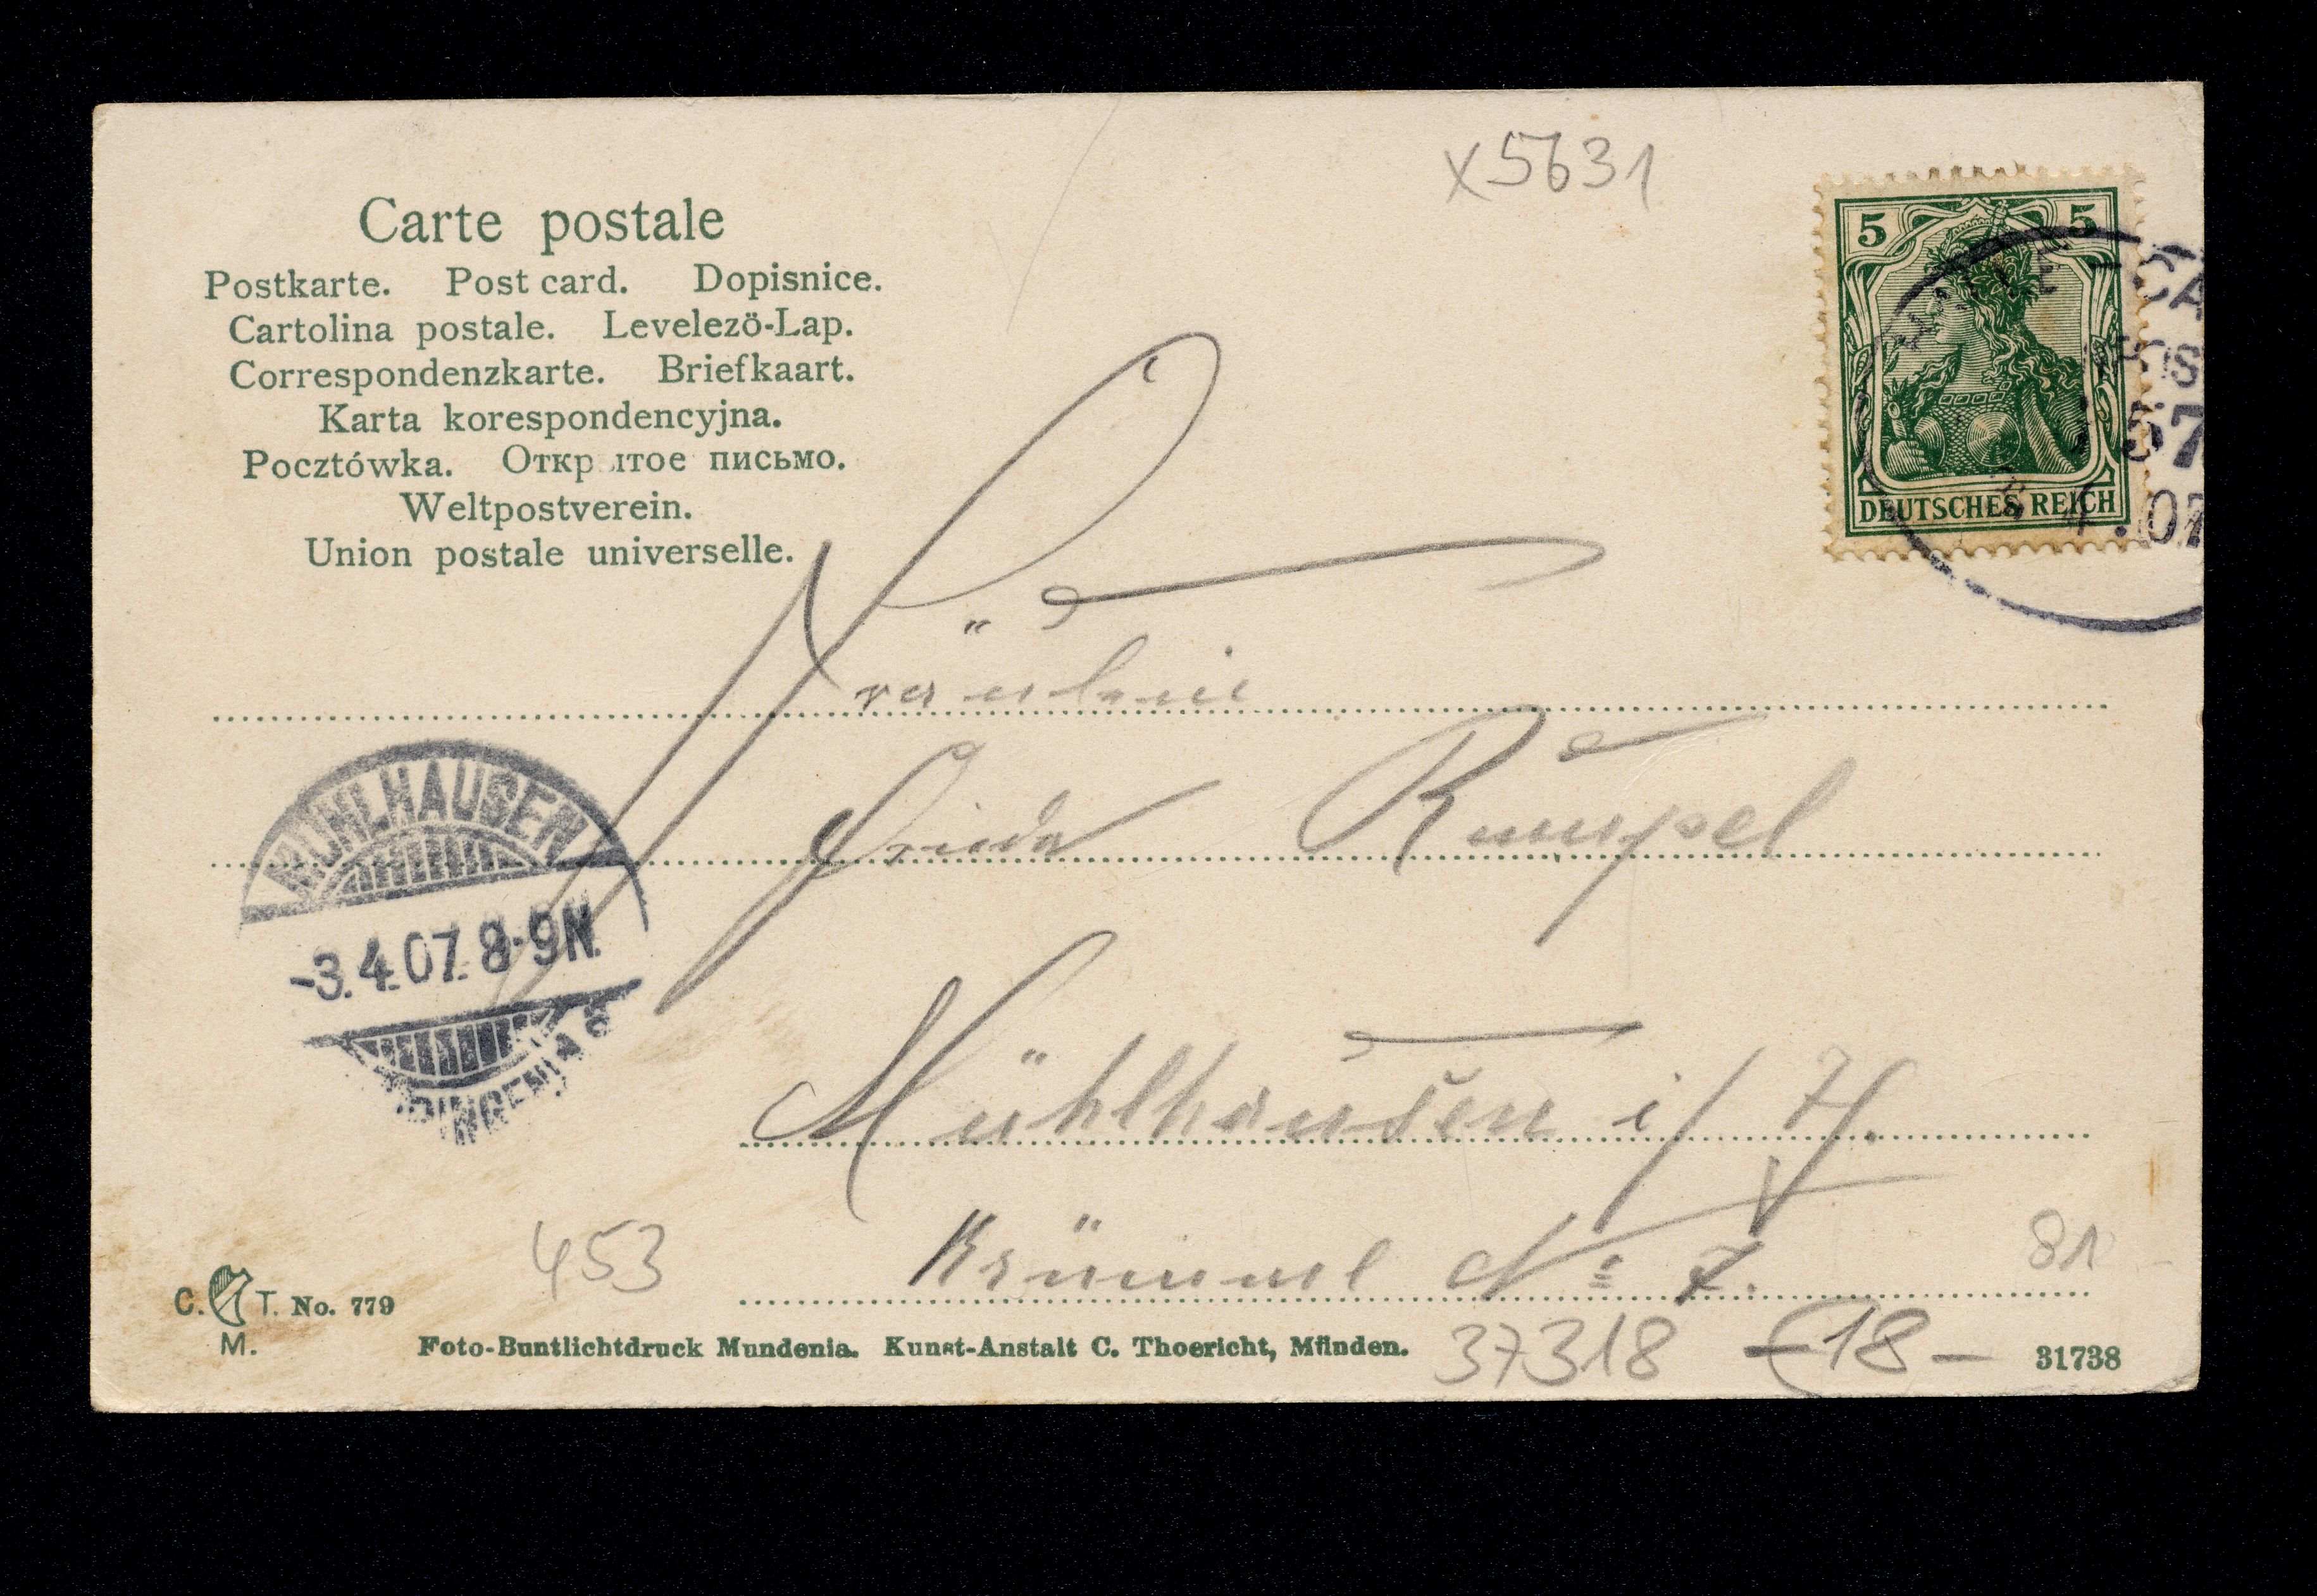 x5631
Carte postale
Postkarte. Post card. Dopisnice.
Cartolina postale. Levelezö-Lap.
Correspondenzkarte. Briefkaart.
Karta korespondencyjna.
Pocztówka. Откр итое письмо.
Weltpostverein.
Union postale universelle.
5 5
DEUTSCHES REICH
57
.07
Fräulein
Frieda Rümpel
MÜHLHAUSEN
-3.4.07. 8-9N.
Mühlhausen i/
Krümmel No 7.
453
81
C. T. No. 779
M.
Foto-Buntlichtdruck Mundenia. Kunst-Anstalt C. Thoericht, Münden.
37318
18-
31738